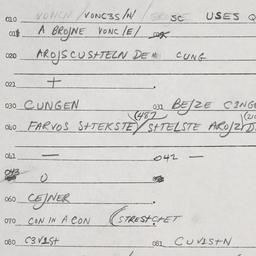 010 VONCN / VONC3S/N/ SC USES Q
011 A BROJNE VONC/E/
020 AROJSCUSHTELN DE* CUNG
021 +
030 CUNGEN 031 BEJZE C3NGE
040 FARVOS SHTEKSTE/SHTELSTE AROJZ
041 — 042 —
043 O
060 CEJNER
070 CON IN A CON (STRESHCHET
080 C3V1SH 081 CUV1SHN